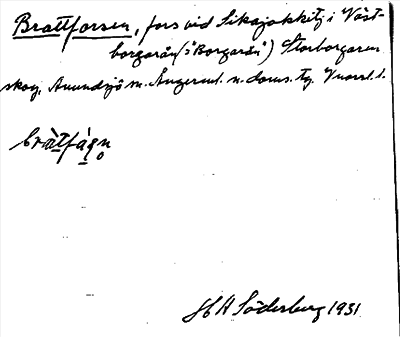 Brattforsen, fors vid Sikajokkitj i Väst-
borgarån (: "Borgarån") Storborgaren
skog, Anundsjö m. Ångerml. n. doms. tg. Vnorrl. l.
bràtfáṣṇ
H A Söderberg 1931